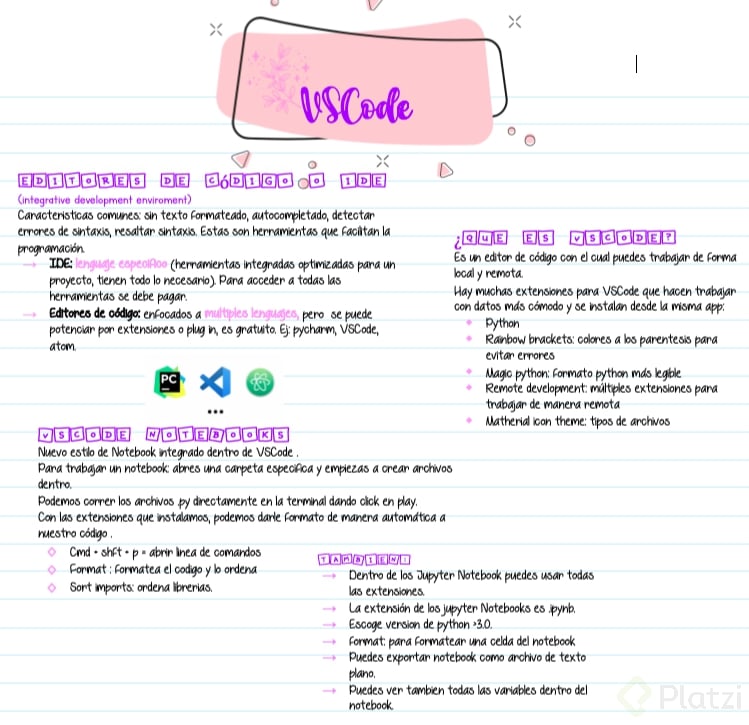 VSCode
EDITORES DE CÓDIGO O IDE
(integrative development enviroment)
Características comunes: sin texto formateado, autocompletado, detectar
errores de sintaxis, resaltar sintaxis. Estas son herramientas que facilitan la
programación.
→ IDE: lenguaje específico (herramientas integradas optimizadas para un
proyecto, tienen todo lo necesario). Para acceder a todas las
herramientas se debe pagar.
→ Editores de código: enfocados a multiples lenguajes, pero se puede
potenciar por extensiones o plug in, es gratuito. Ej: pycharm, VSCode,
atom.
PC
...
¿QUE ES VSCODE?
Es un editor de código con el cual puedes trabajar de forma
local y remota.
Hay muchas extensiones para VSCode que hacen trabajar
con datos más cómodo y se instalan desde la misma app:
Python
Rainbow brackets: colores a los parentesis para
evitar errores
Magic python: formato python más legible
Remote development: múltiples extensiones para
trabajar de manera remota
Matherial icon theme: tipos de archivos
VSCODE NOTEBOOKS
Nuevo estilo de Notebook integrado dentro de VSCode .
Para trabajar un notebook: abres una carpeta específica y empiezas a crear archivos
dentro.
Podemos correr los archivos .py directamente en la terminal dando click en play.
Con las extensiones que instalamos, podemos darle formato de manera automática a
nuestro código .
Cmd + shft + p = abrir línea de comandos
Format : formatea el codigo y lo ordena
Sort imports: ordena librerias.
TAMBIEN:
→ Dentro de los Jupyter Notebook puedes usar todas
las extensiones.
→ La extensión de los jupyter Notebooks es .ipynb.
→ Escoge version de python >3.0.
→ Format: para formatear una celda del notebook
→ Puedes exportar notebook como archivo de texto
plano.
→ Puedes ver tambien todas las variables dentro del
notebook.
Platzi